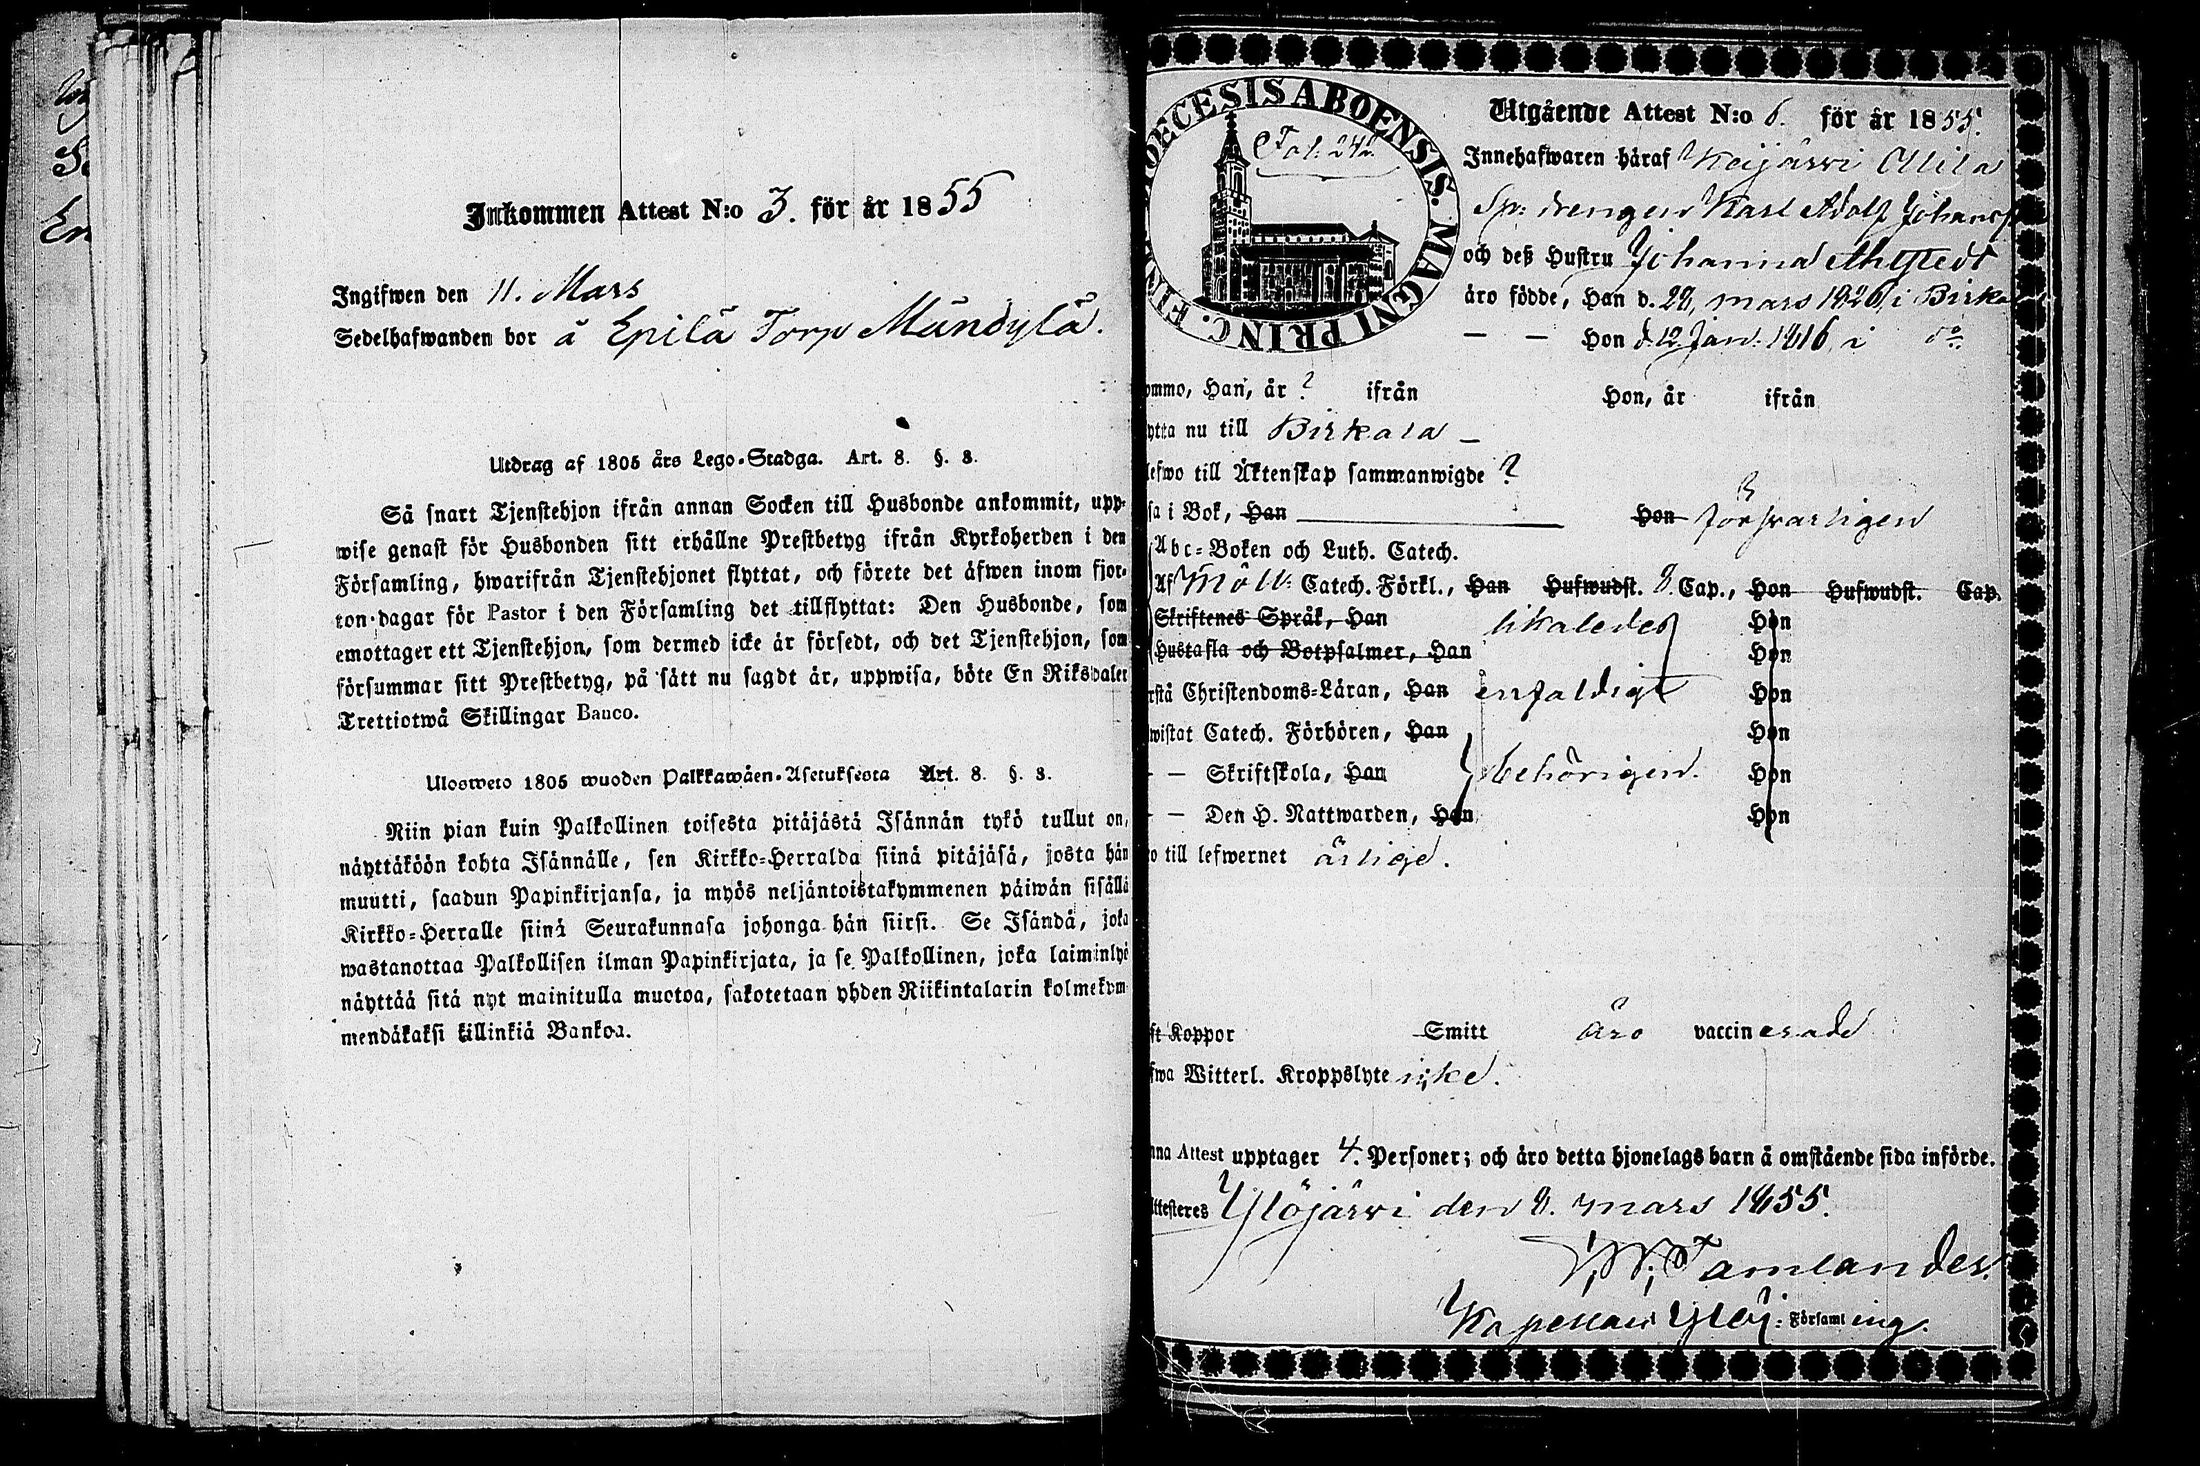 Inkommen Attest N:o 3. för år 1855
Ingifwen den 11. Mars
Sedelhafwanden bor å Epilä Torp Mündylä.
Utdrag af 1805 års Lego-Stadga. Art. 8. §. 8.
Så snart Tjenstehjon ifrån annan Socken till Husbonde ankommit, upp-
wise genast för Husbonden sitt erhållne Prestbetyg ifrån Kyrkoherden i den
Församling, hwarifrån Tjenstehjonet flyttat, och förete det äfwen inom fjor-
ton dagar för Pastor i den Församling det tillflyttat: Den Husbonde, som
emottager ett Tjenstehjon, som dermed icke är försedt, och det Tjenstehjon, som
försummar sitt Prestbetyg, på sätt nu sagdt är, uppwisa, böte En Riksdaler
Trettiotwå Skillingar Banco.
Ulosweto 1805 wuoden Palkkawäen-Asetuksesta Art. 8. §. 8.
Niin pian kuin Palkollinen toisesta pitäjästä Isännän tykö tullut on,
näyttäköön kohta Isännälle, sen Kirkko-Herralda siinä pitäjäsä, josta hän
muutti, saadun Papinkirjansa, ja myös neljäntoistakymmenen päiwän sisällä
Kirkko-Herralle siinä Seurakunnasa johonga hän siirsi. Se Isändä, joka
wastanottaa Palkollisen ilman Papinkirjata, ja se Palkollinen, joka laiminlyö
näyttää sitä nyt mainitulla muotoa, sakotetaan yhden Riikintalarin kolmekym-
mendäkaksi killinkiä Bankoa.
DIOECESIS ABOENSIS. MAGNI PRINC. FIN
Fol: 242
Utgående Attest N:o 6. för år 1855.
Innehafwaren häraf Keijärvi Alila
Sp: drengen Karl Adolf Johans
och deß Hustru Johanna Ahlstedt
äro födde, Han d. 28, mars 1826, i Birka
— — Hon d. 12. Jan. 1816, i do
ommo, Han, år ? ifrån Hon, år ifrån
ytta nu till Birkala —
lefwo till Äktenskap sammanwigde ?
sa i Bok, Han Hon försvarligen
Abc-Boken och Luth. Catech.
Af Möll: Catech. Förkl., Han Hufwudst. 8. Cap., Hon Hufwudst. Cap.
Skriftenes Språk, Han likaledes Hon
Hustafla och Botpsalmer, Han Hon
rstå Christendoms-Läran, Han enfaldigt Hon
wistat Catech. Förhören, Han Hon
— — Skriftskola, Han behörigen. Hon
— — Den H. Nattwarden, Han Hon
o till lefwernet ärlige.
ft Koppor Smitt äro vaccinerade
fwa Witterl. Kroppslyte icke.
nna Attest upptager 4. Personer; och äro detta hjonelags barn å omstående sida införde.
Attesteres Ylöjärvi den 8. mars 1855.
Tamlander.
Kapellan Ylöj: Församling.